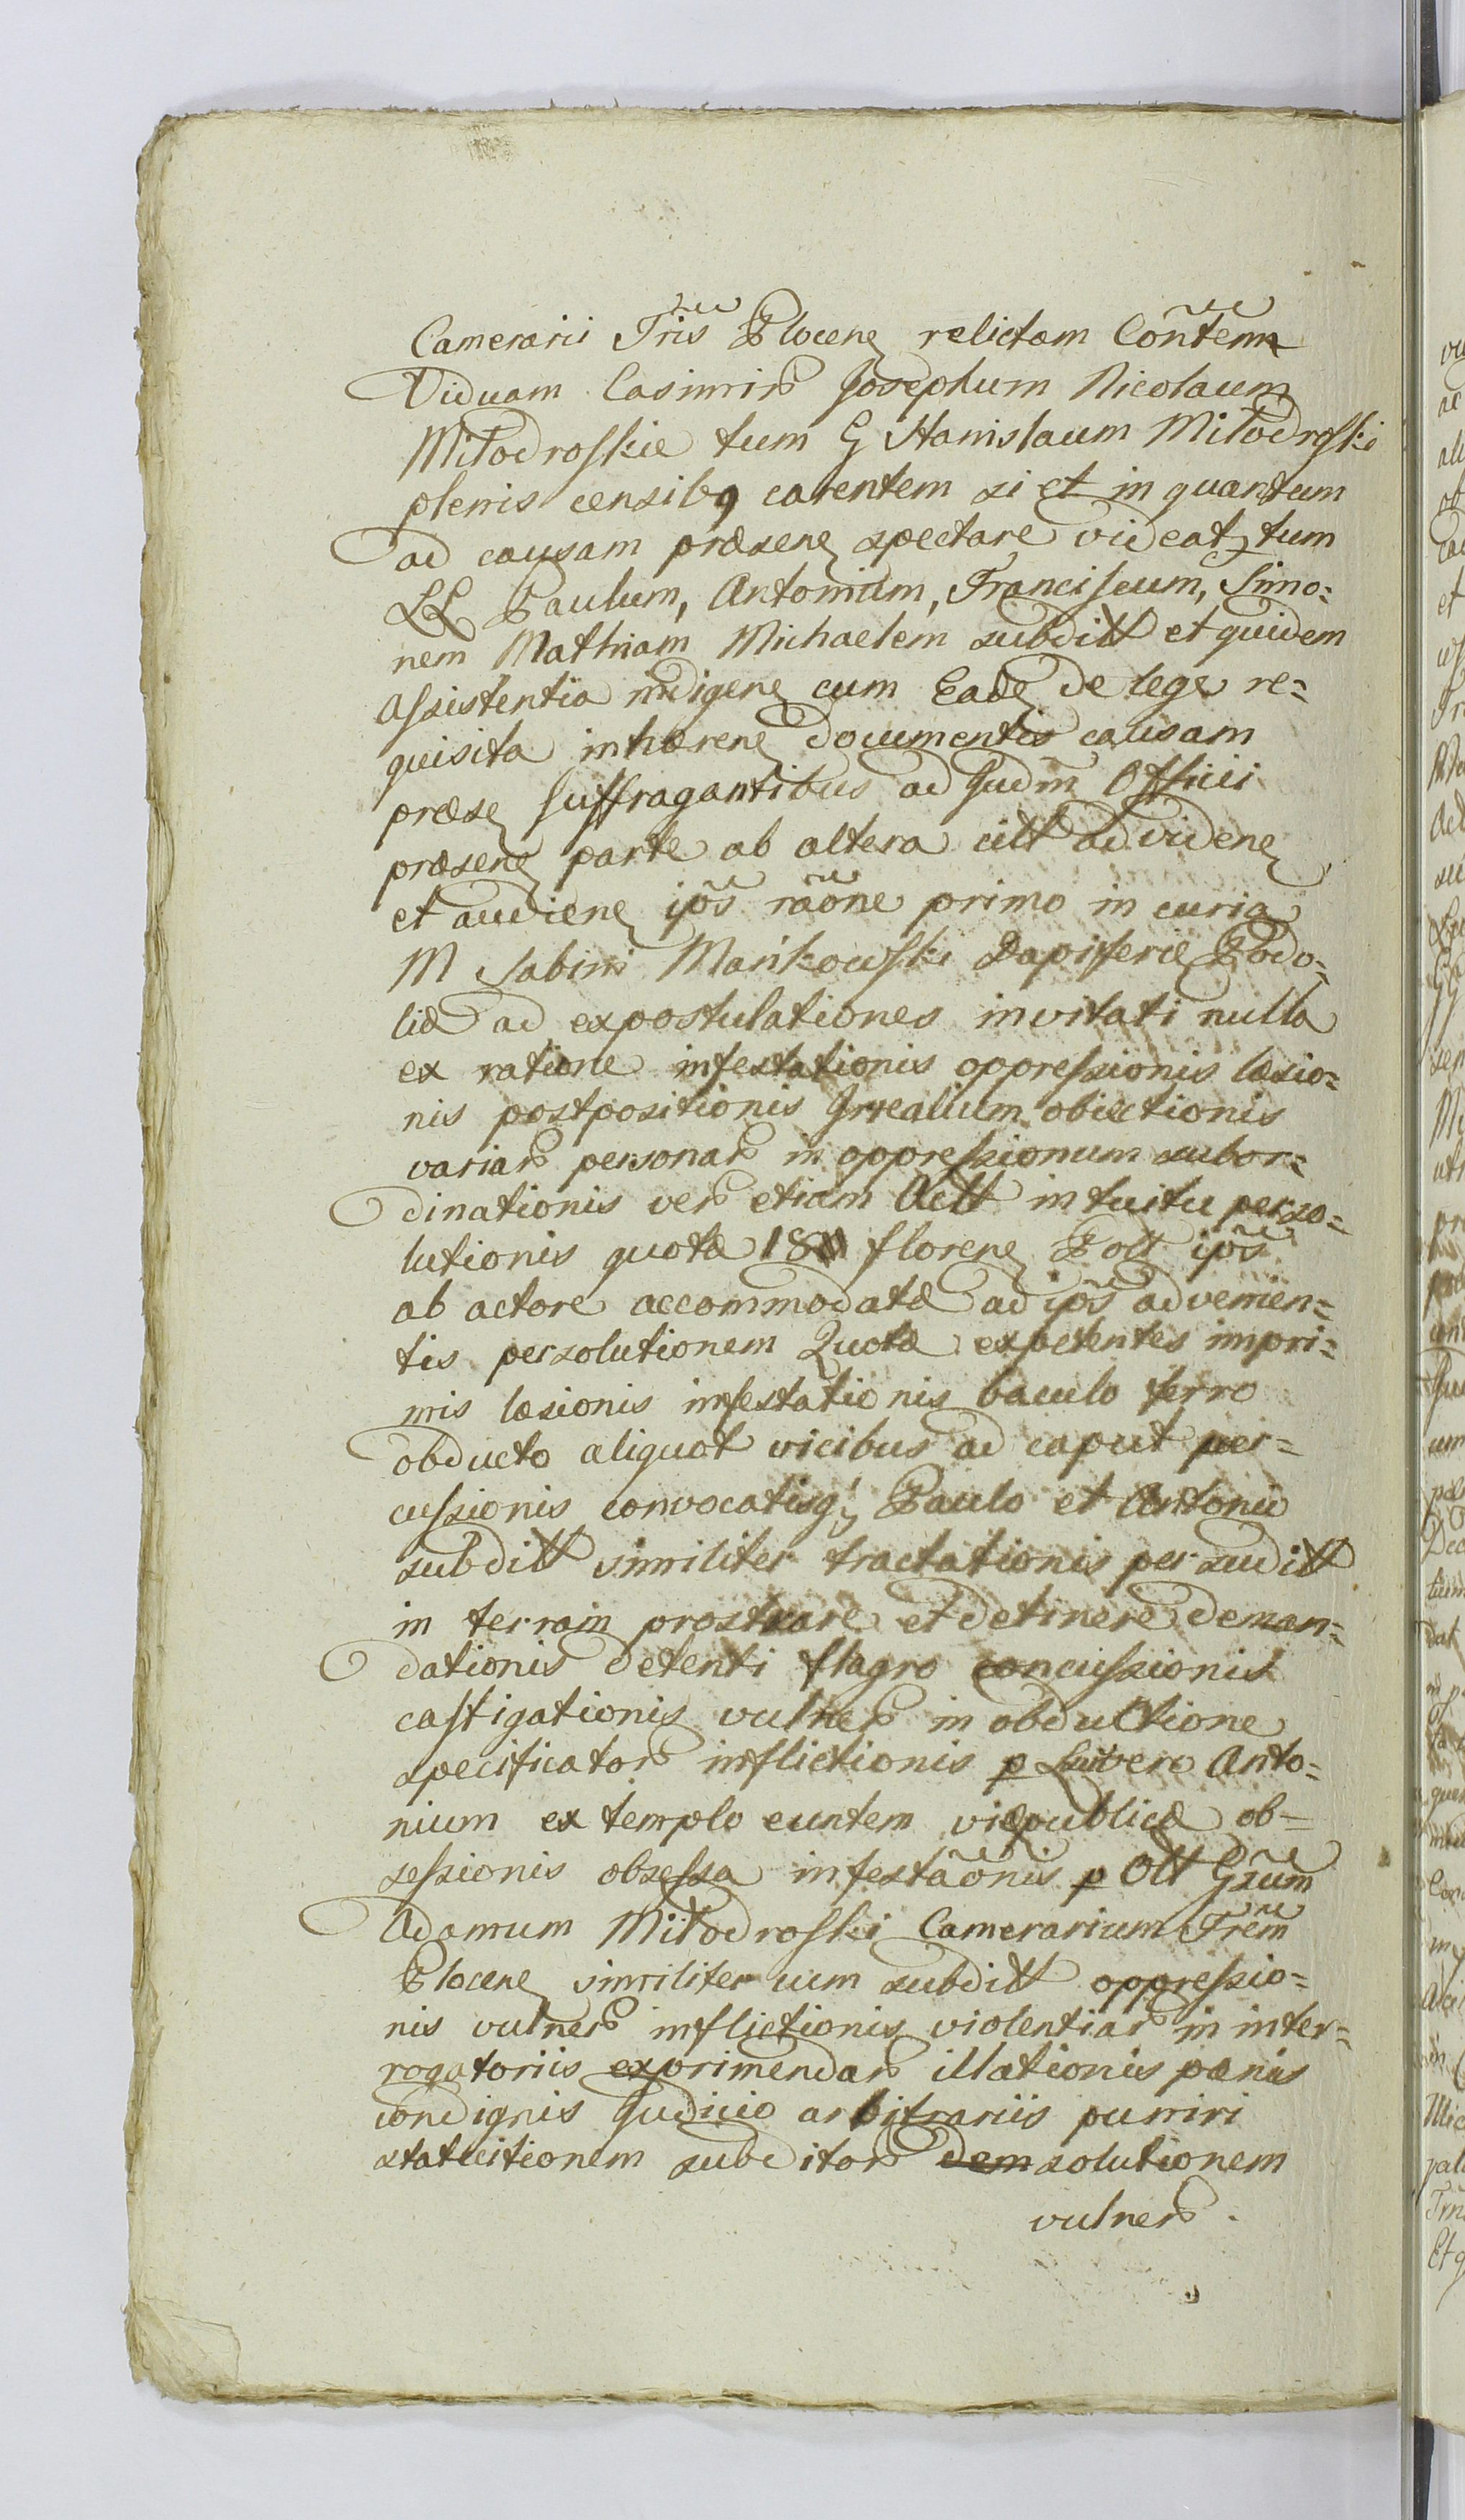 Camerarii Tris Plocen relictam Contem
Viduam Casimir Josephum Nicolaum
Miłodroskie tum G Stanislaum Miłodroski
plenis censibq carentem si et in quantum
ad causam præsen spectare videat tum
LL Paulum, Antonium, Franciscum, Simo=
nem Mathiam Michaelem subditt et quidem
assistentia indigen cum Eade de lege re=
quisita inhæren documentis causam
præse suffragantibus ad Judm Officii
præsen parte ab altera citt ad viden
et audien ipos raone primo in curia
M Sabini Mańkowski Dapiferi Podo=
liæ ad expostulationes invitati nulla
ex ratione infestationis oppressionis læsio=
nis postpositionis Irrealium obiectionis
variar personar in oppressionum subor=
dinationis ver etiam Actt intuitu perso=
lutionis quotæ 18 floren Poll ipos
ab actore accommodatæ ad ipos advenien=
tis persolutionem Quotæ expetentes impri=
mis læsionis infestationis baculo ferro
obducto aliquot vicibus ad caput per=
cussionis convocatisq; Paulo et Antonio
subditt similiter tractationis per subditt
in terram prostrare et detinere deman=
dationis detenti flagro concussionis
castigationis vulner in obductione
specificator inflictionis p vero Anto=
nium ex templo euntem viæ publicæ ob=
sessionis obsessa infestaonis p Olt Gsum
Adamum Miłodroski Camerarium Trem
Plocen similiter cum subditt oppressio=
nis vulner inflictionis violentiar in inter=
rogatoriis exprimendar illationis pænis
condignis Judicio arbitrariis puniri
statuitionem subditor dem solutionem
vulner